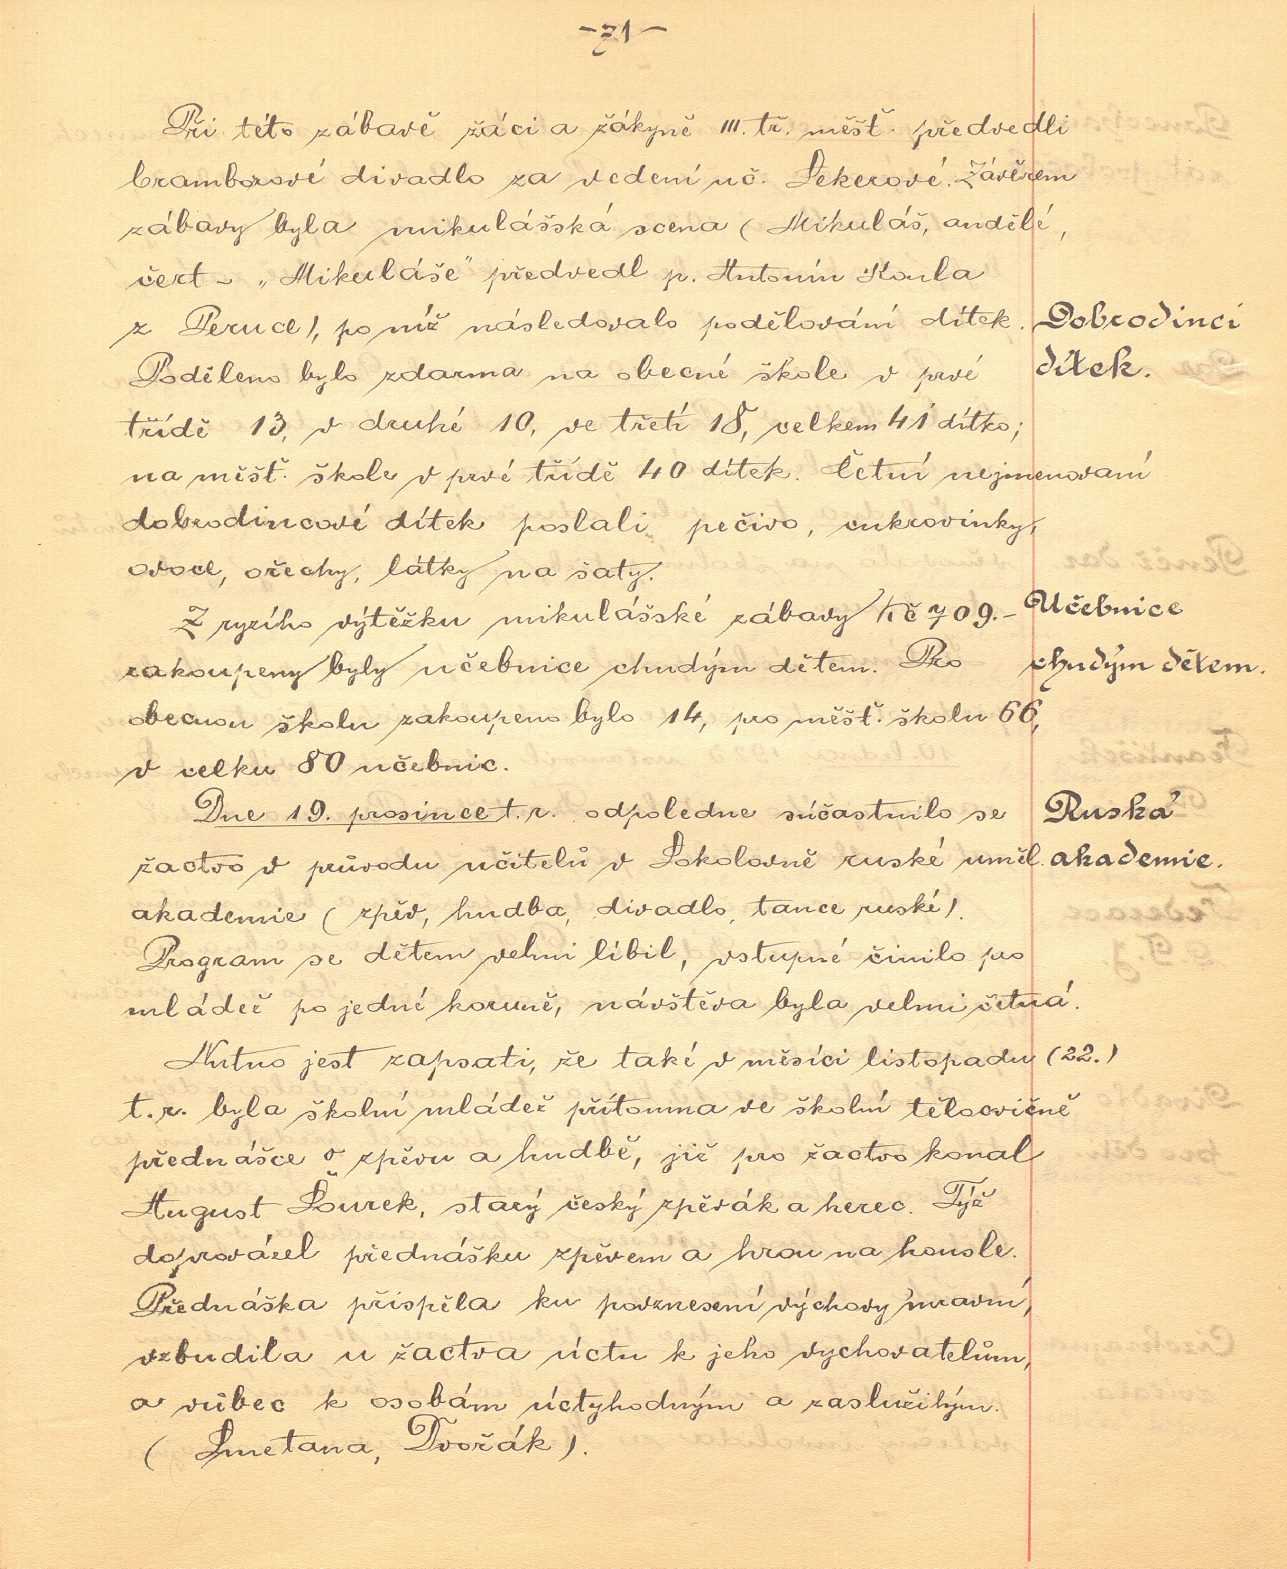 -71-
Při této zábavě žáci a žákyně III. tř. měšť. předvedli
bramborové divadlo za vedení uč. Sekerové. Závěrem
zábavy byla mikulášská scena (Mikuláš, andělé,
čert - „Mikuláše" předvedl p. Antonín Koula
z Peruce), po níž následovalo podělování dítek.
Dobrodinci
dítek.
Poděleno bylo zdarma na obecné škole v prvé
třídě 13, v druhé 10, ve třetí 18, celkem 41 dítko;
na měšť. škole v prvé třídě 40 dítek. Četní nejmenovaní
dobrodincové dítek poslali pečivo, cukrovinky,
ovoce, ořechy, látky na šaty.
Z ryzího výtěžku mikulášské zábavy Kč 709.-
Učebnice
chudým dětem.
zakoupeny byly učebnice chudým dětem. Pro
obecnou školu zakoupeno bylo 14, pro měšť. školu 66,
v celku 80 učebnic.
Dne 19. prosince t. r. odpoledne súčastnilo se
Ruská
akademie.
žactvo v průvodu učitelů v Sokolovně ruské uměl.
akademie (zpěv, hudba, divadlo, tance ruské).
Program se dětem velmi líbil, vstupné činilo pro
mládež po jedné koruně, návštěva byla velmi četná.
Nutno jest zapsati, že také v měsíci listopadu (22.)
t. r. byla školní mládež přítomna ve školní tělocvičně
přednášce o zpěvu a hudbě, již pro žactvo konal
August Šourek, starý český zpěvák a herec. Týž
doprovázel přednášku zpěvem a hrou na housle.
Přednáška přispěla ku povznesení výchovy mravní,
vzbudila u žactva úctu k jeho vychovatelům,
a vůbec k osobám úctyhodným a zasloužilým.
(Smetana, Dvořák).